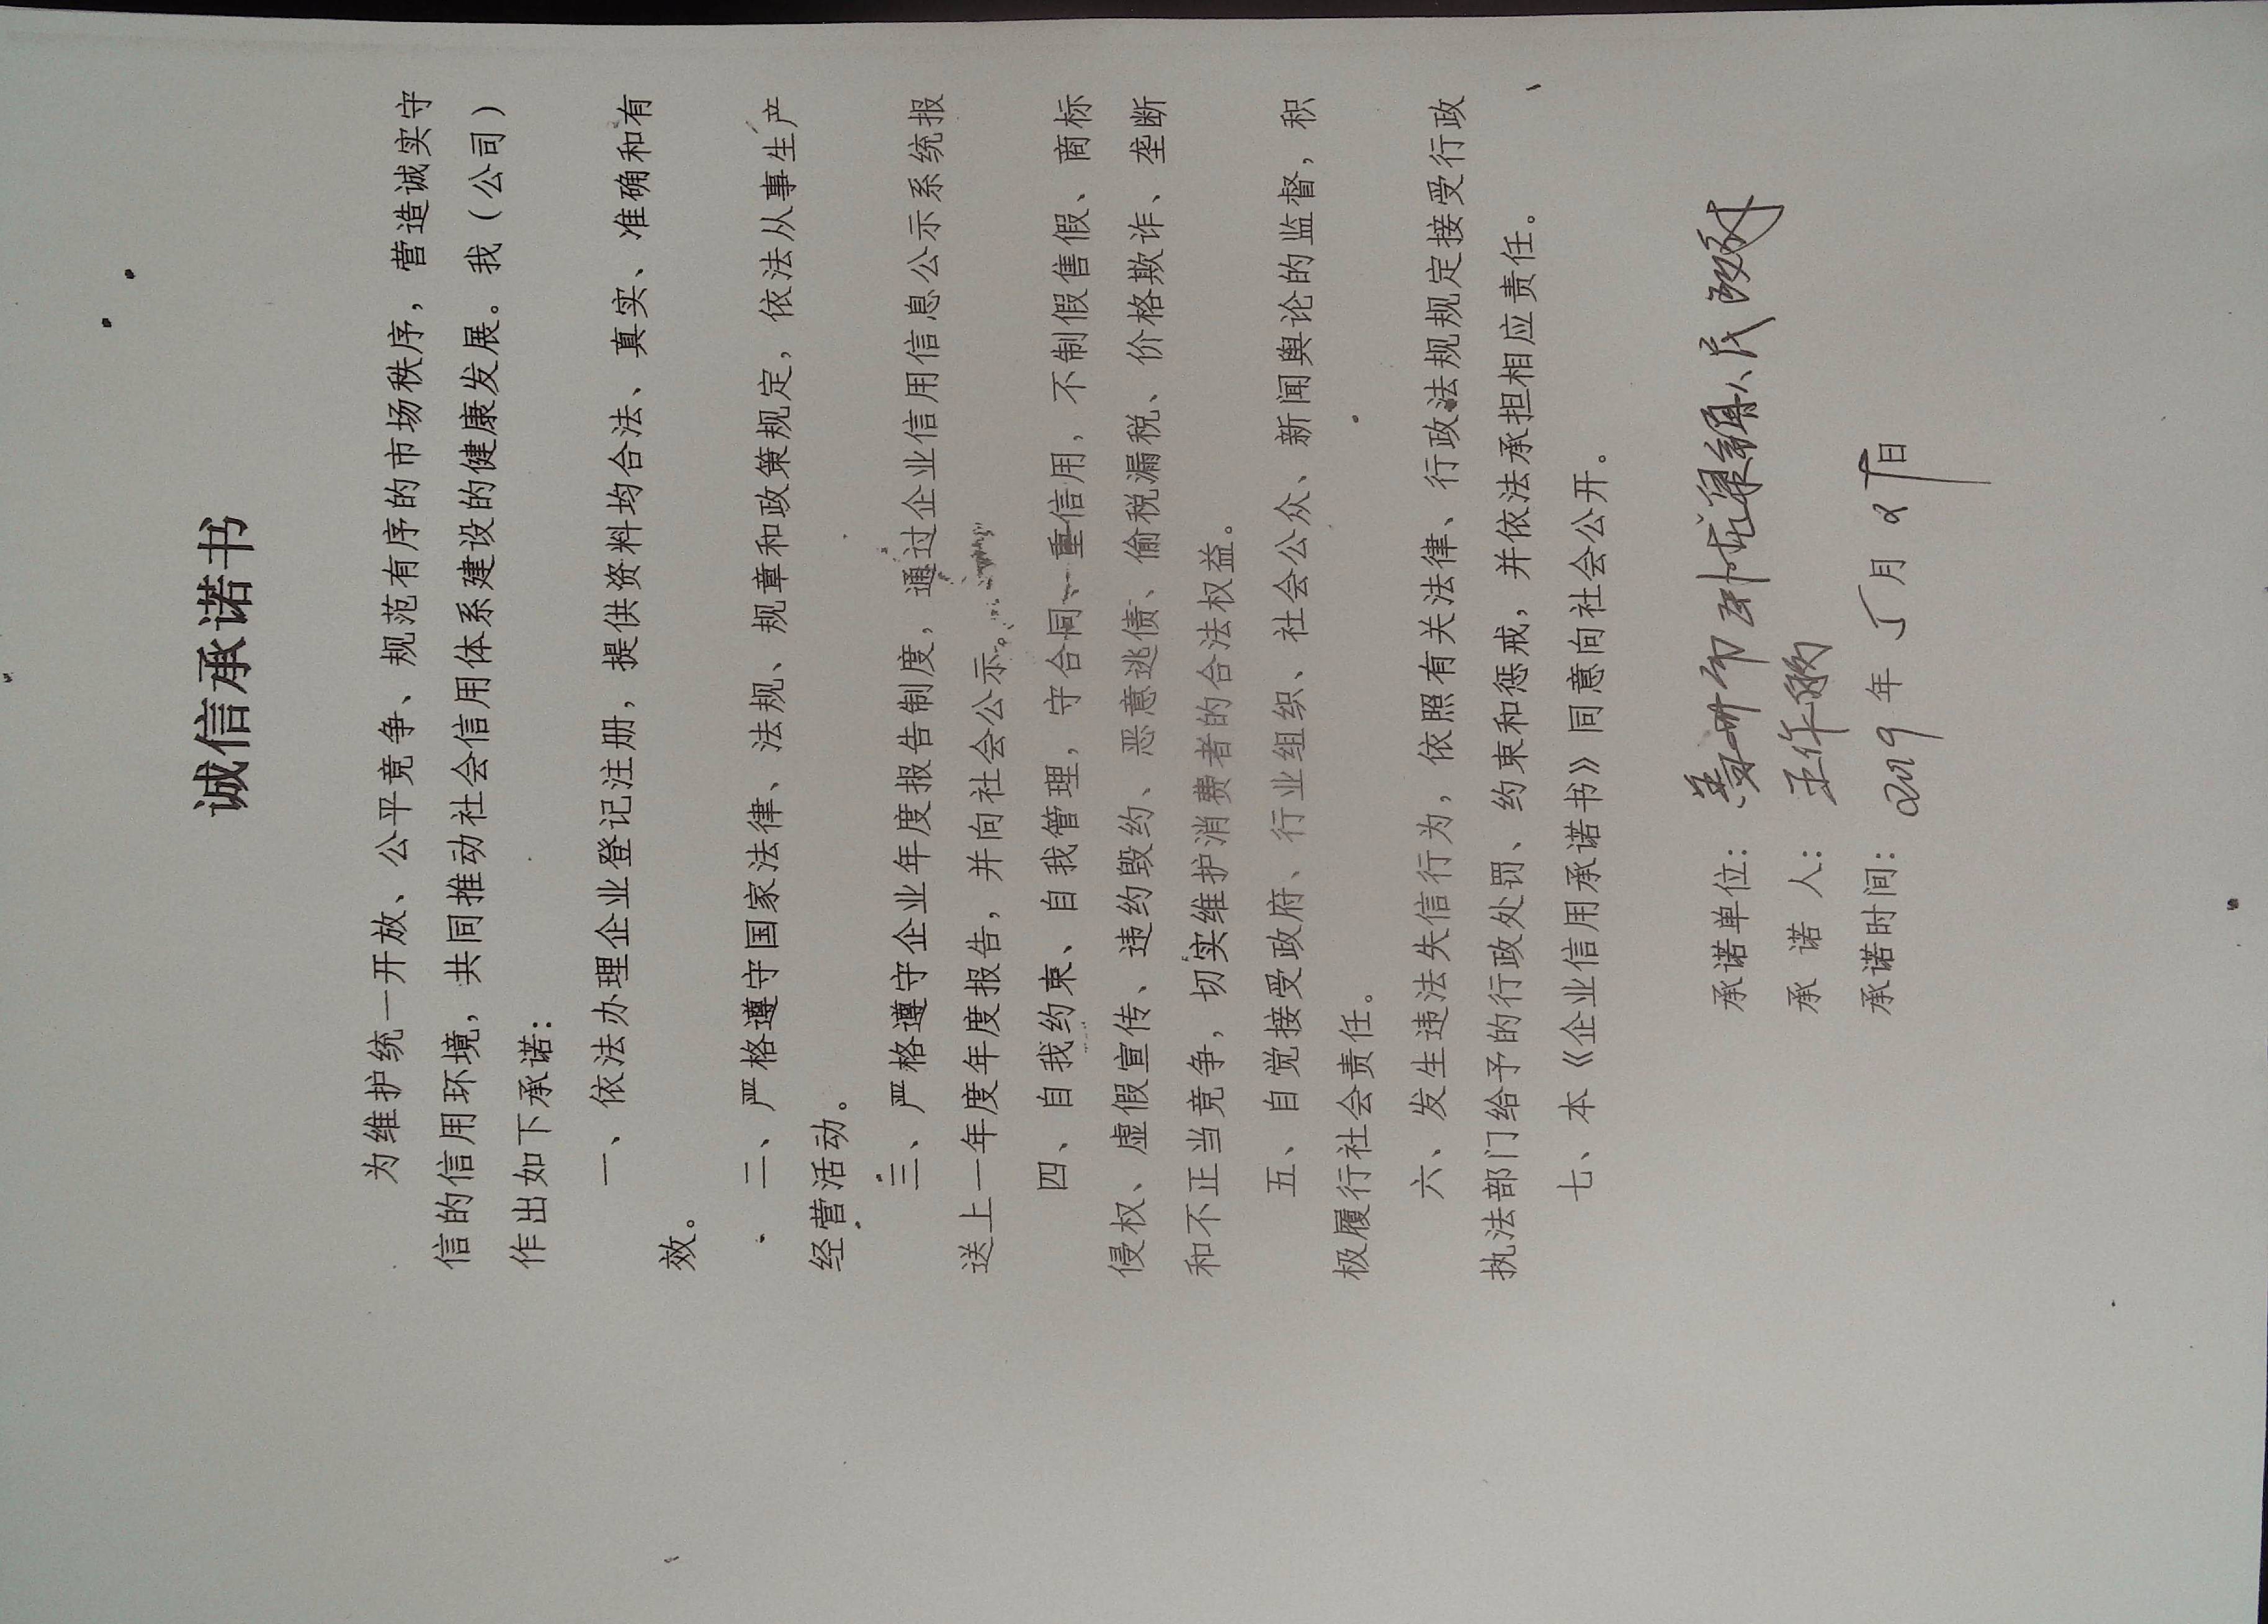 诚信承诺书
为维护统一开放、公平竞争、规范有序的市场秩序，营造诚实守
信的信用环境，共同推动社会信用体系建设的健康发展。我（公司）
作出如下承诺：
一、依法办理企业登记注册，提供资料均合法、真实、准确和有
效。
二、严格遵守国家法律、法规、规章和政策规定，依法从事生产
经营活动。
三、严格遵守企业年度报告制度，通过企业信用信息公示系统报
送上一年度年度报告，并向社会公示。
四、自我约束、自我管理，守合同、重信用，不制假售假、商标
侵权、虚假宣传、违约毁约、恶意逃债、偷税漏税、价格欺诈、垄断
和不正当竞争，切实维护消费者的合法权益。
五、自觉接受政府、行业组织、社会公众、新闻舆论的监督，积
极履行社会责任。
六、发生违法失信行为，依照有关法律、行政法规规定接受行政
执法部门给予的行政处罚、约束和惩戒，并依法承担相应责任。
七、本《企业信用承诺书》同意向社会公开。
承诺单位：
承 诺 人：
承诺时间：2019年5月 日